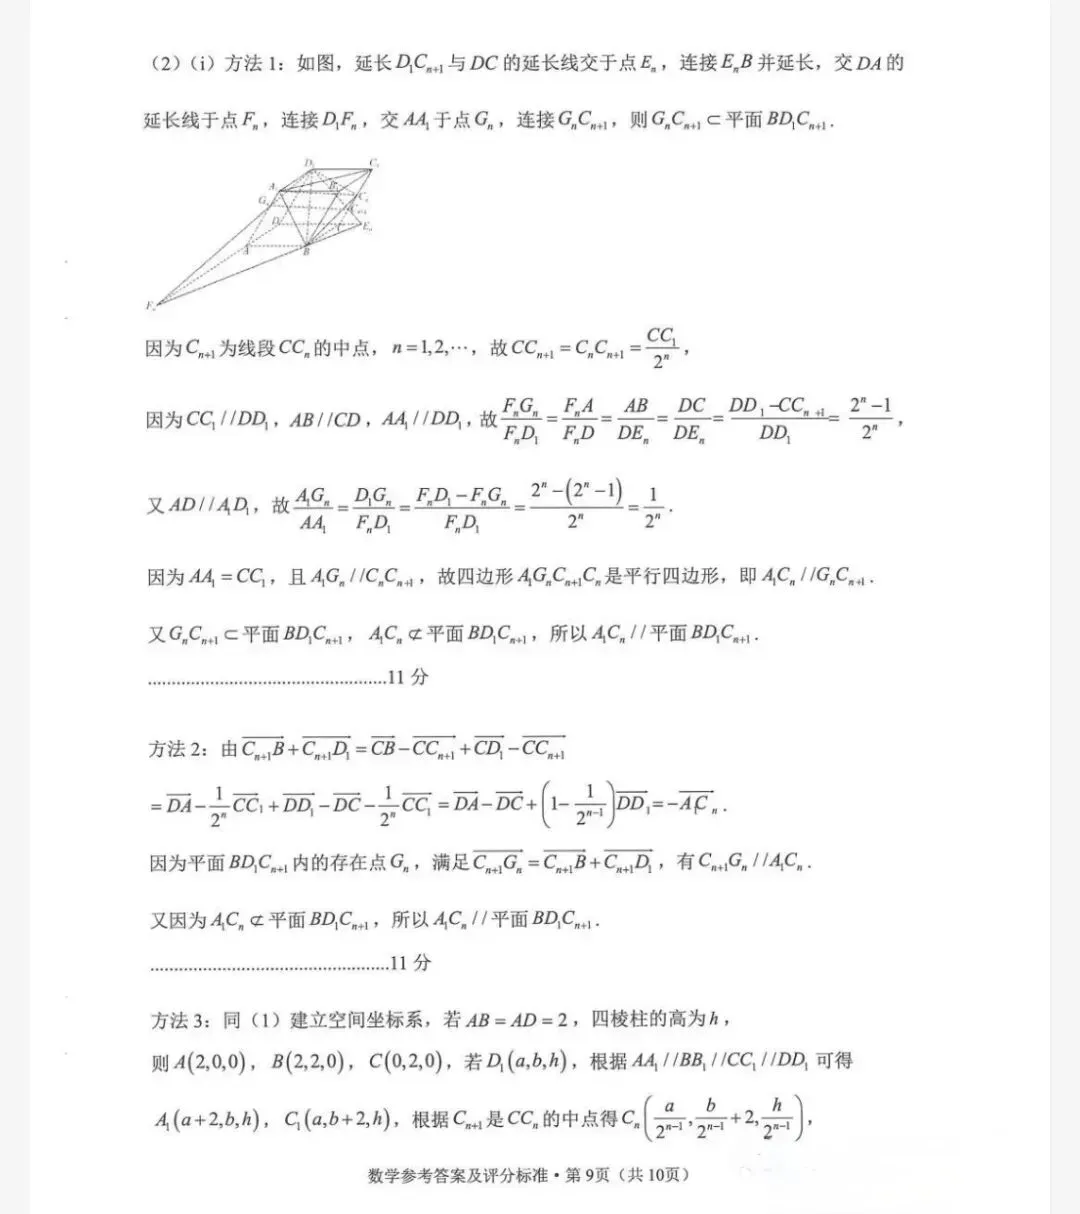 (2)(i)方法1:如图,延长D₁Cₙ₊₁与DC的延长线交于点Eₙ,连接EₙB并延长,交DA的
延长线于点Fₙ,连接D₁Fₙ,交AA₁于点Gₙ,连接GₙCₙ₊₁,则GₙCₙ₊₁⊂平面BD₁Cₙ₊₁.
因为Cₙ₊₁为线段CCₙ的中点,n=1,2,⋯,故CCₙ₊₁=CₙCₙ₊₁=CC₁/2ⁿ,
因为CC₁//DD₁,AB//CD,AA₁//DD₁,故FₙGₙ/FₙD₁=FₙA/FₙD=AB/DEₙ=DC/DEₙ=(DD₁-CCₙ₊₁)/DD₁=(2ⁿ-1)/2ⁿ,
又AD//A₁D₁,故A₁Gₙ/AA₁=D₁Gₙ/FₙD₁=(FₙD₁-FₙGₙ)/FₙD₁=(2ⁿ-(2ⁿ-1))/2ⁿ=1/2ⁿ.
因为AA₁=CC₁,且A₁Gₙ//CₙCₙ₊₁,故四边形A₁GₙCₙ₊₁Cₙ是平行四边形,即A₁Cₙ//GₙCₙ₊₁.
又GₙCₙ₊₁⊂平面BD₁Cₙ₊₁,A₁Cₙ⊄平面BD₁Cₙ₊₁,所以A₁Cₙ//平面BD₁Cₙ₊₁.
..................................................11分
方法2:由\overrightarrow{Cₙ₊₁B}+\overrightarrow{Cₙ₊₁D₁}=\overrightarrow{CB}-\overrightarrow{CCₙ₊₁}+\overrightarrow{CD₁}-\overrightarrow{CCₙ₊₁}
=\overrightarrow{DA}-1/2ⁿ\overrightarrow{CC₁}+\overrightarrow{DD₁}-\overrightarrow{DC}-1/2ⁿ\overrightarrow{CC₁}=\overrightarrow{DA}-\overrightarrow{DC}+(1-1/2ⁿ⁻¹)\overrightarrow{DD₁}=-\overrightarrow{A₁Cₙ}.
因为平面BD₁Cₙ₊₁内的存在点Gₙ,满足\overrightarrow{Cₙ₊₁Gₙ}=\overrightarrow{Cₙ₊₁B}+\overrightarrow{Cₙ₊₁D₁},有Cₙ₊₁Gₙ//A₁Cₙ.
又因为A₁Cₙ⊄平面BD₁Cₙ₊₁,所以A₁Cₙ//平面BD₁Cₙ₊₁.
..................................................11分
方法3:同(1)建立空间坐标系,若AB=AD=2,四棱柱的高为h,
则A(2,0,0),B(2,2,0),C(0,2,0),若D₁(a,b,h),根据AA₁//BB₁//CC₁//DD₁可得
A₁(a+2,b,h),C₁(a,b+2,h),根据Cₙ₊₁是CCₙ的中点得Cₙ(a/2ⁿ⁻¹,b/2ⁿ⁻¹+2,h/2ⁿ⁻¹),
数学参考答案及评分标准·第9页(共10页)